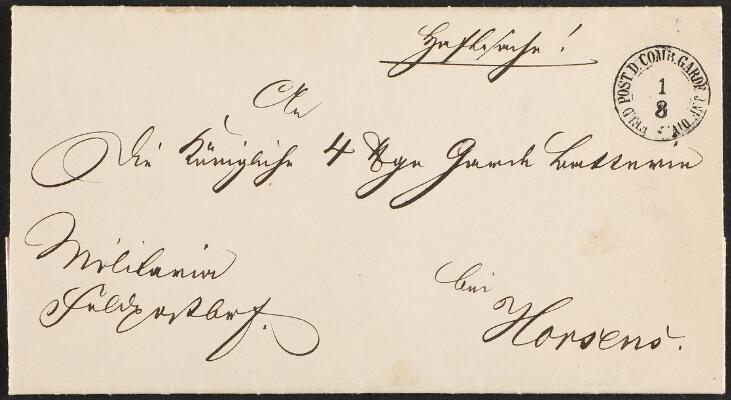 Haftsache!
FELD POST D. COMB. GARDE INF. DIV.
1
8
An
Die Königliche 4 Pfge Garde Batterie
Militaria
Feldpostbrf.
bei
Horsens.